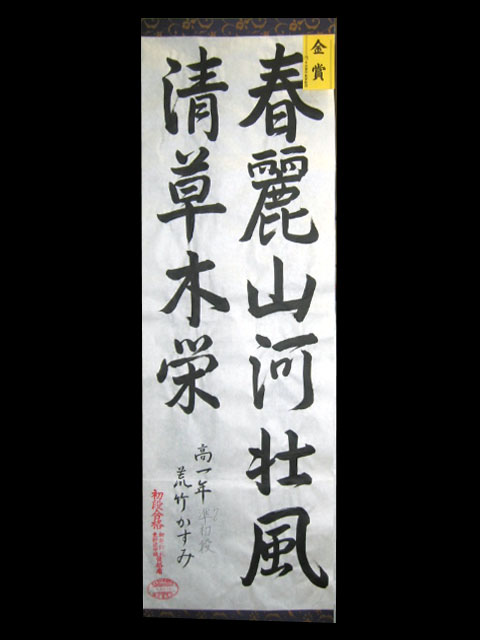 金賞
春麗山河壮風
清草木栄
高一年
荒竹かすみ
初段合格